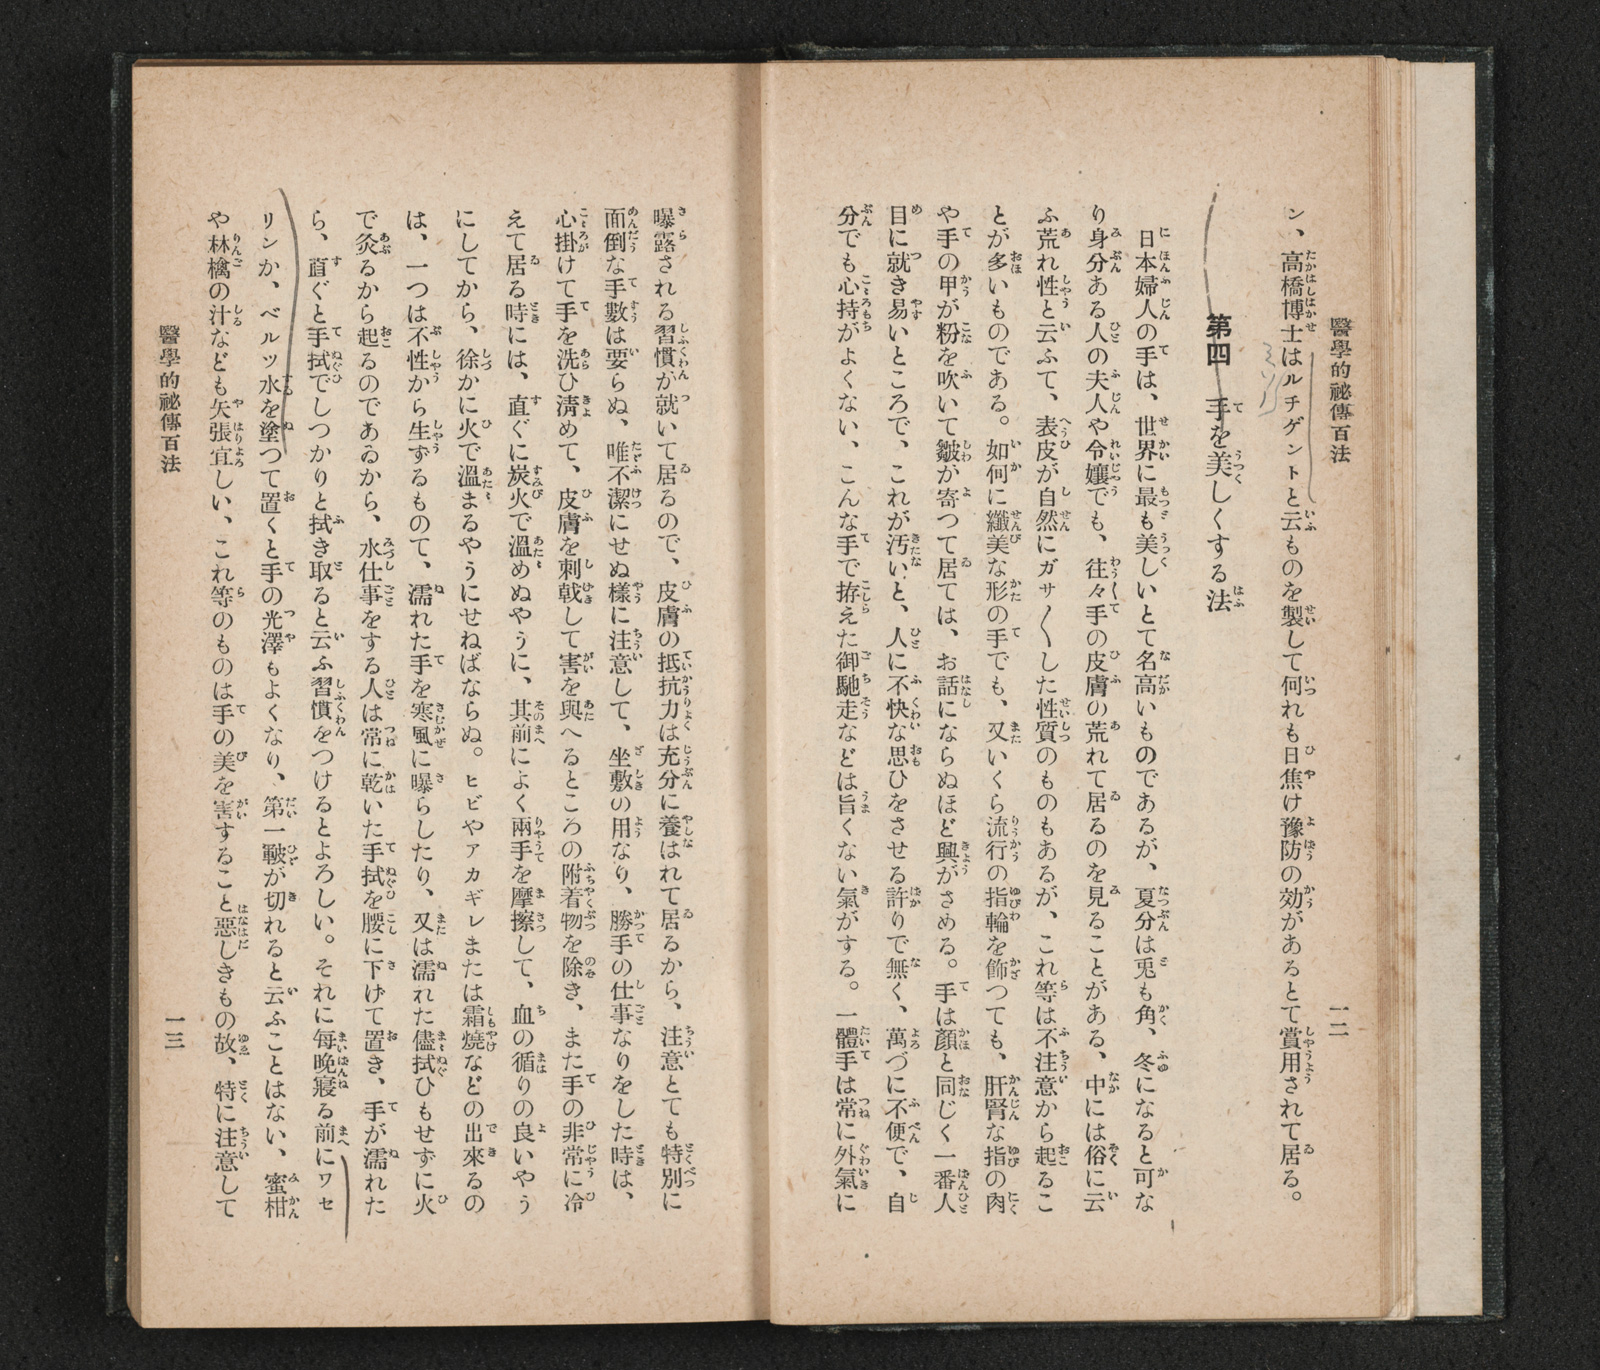 醫學的祕傳百法
一二
ン、高橋博士はルチゲントと云ものを製して何れも日焦け豫防の効があるとて賞用されて居る。
第四　手を美しくする法
日本婦人の手は、世界に最も美しいとて名高いものであるが、夏分は兎も角、冬になると可な
り身分ある人の夫人や令孃でも、往々手の皮膚の荒れて居るのを見ることがある、中には俗に云
ふ荒れ性と云ふて、表皮が自然にガサ〱した性質のものもあるが、これ等は不注意から起るこ
とが多いものである。如何に纖美な形の手でも、又いくら流行の指輪を飾つても、肝腎な指の肉
や手の甲が粉を吹いて皺が寄つて居ては、お話にならぬほど興がさめる。手は顏と同じく一番人
目に就き易いところで、これが汚いと、人に不快な思ひをさせる許りで無く、萬づに不便で、自
分でも心持がよくない、こんな手で拵えた御馳走などは旨くない氣がする。一體手は常に外氣に
曝露される習慣が就いて居るので、皮膚の抵抗力は充分に養はれて居るから、注意とても特別に
面倒な手數は要らぬ、唯不潔にせぬ樣に注意して、坐敷の用なり、勝手の仕事なりをした時は、
心掛けて手を洗ひ淸めて、皮膚を刺戟して害を與へるところの附着物を除き、また手の非常に冷
えて居る時には、直ぐに炭火で溫めぬやうに、其前によく兩手を摩擦して、血の循りの良いやう
にしてから、徐かに火で溫まるやうにせねばならぬ。ヒビやアカギレまたは霜燒などの出來るの
は、一つは不性から生ずるもので、濡れた手を寒風に曝らしたり、又は濡れた儘拭ひもせずに火
で灸るから起るのであるから、水仕事をする人は常に乾いた手拭を腰に下げて置き、手が濡れた
ら、直ぐと手拭でしつかりと拭き取ると云ふ習慣をつけるとよろしい。それに每晚寢る前にワセ
リンか、ベルツ水を塗つて置くと手の光澤もよくなり、第一皸が切れると云ふことはない、蜜柑
や林檎の汁なども矢張宜しい、これ等のものは手の美を害すること惡しきもの故、特に注意して
醫學的祕傳百法
一三